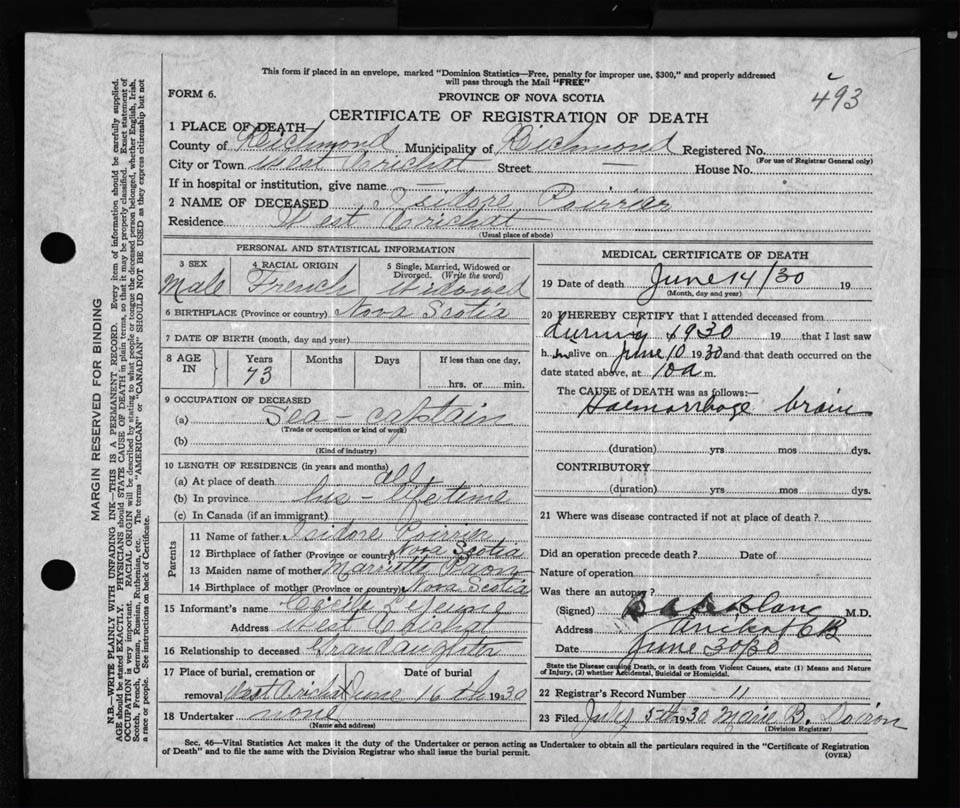 This form if placed in an envelope, marked "Dominion Statistics—Free, penalty for improper use, $300," and properly addressed
will pass through the Mail "FREE"
FORM 6.
PROVINCE OF NOVA SCOTIA
493
CERTIFICATE OF REGISTRATION OF DEATH
1 PLACE OF DEATH—
County of Richmond Municipality of Richmond Registered No.
(For use of Registrar General only)
City or Town West Arichat Street — House No.
If in hospital or institution, give name —
2 NAME OF DECEASED Isidore Poirrier
Residence West Arichat
(Usual place of abode)
PERSONAL AND STATISTICAL INFORMATION
3 SEX 4 RACIAL ORIGIN 5 Single, Married, Widowed or
Divorced. (Write the word)
Male French Widowed
6 BIRTHPLACE (Province or country) Nova Scotia
7 DATE OF BIRTH (month, day and year)
8 AGE IN Years Months Days If less than one day.
73 hrs. or min.
9 OCCUPATION OF DECEASED
(a) Sea-captain
(Trade or occupation or kind of work)
(b)
(Kind of industry)
10 LENGTH OF RESIDENCE (in years and months)
(a) At place of death all
(b) In province his-life time
(c) In Canada (if an immigrant)
Parents
11 Name of father Isidore Poirrier
12 Birthplace of father (Province or country) Nova Scotia
13 Maiden name of mother
14 Birthplace of mother (Province or country) Nova Scotia
15 Informant's name
Address West Arichat
16 Relationship to deceased Grandaughter
17 Place of burial, cremation or Date of burial
removal West Arichat June 16th 1930
18 Undertaker none
(Name and address)
MEDICAL CERTIFICATE OF DEATH
19 Date of death June 14/30 19
(Month, day and year)
20 I HEREBY CERTIFY that I attended deceased from
during 1930 19 that I last saw
h im alive on June 10 1930 and that death occurred on the
date stated above, at 10 a m.
The CAUSE of DEATH was as follows:—
Haemorrhage brain
(duration) yrs mos dys.
CONTRIBUTORY
(duration) yrs mos dys.
21 Where was disease contracted if not at place of death?
Did an operation precede death? Date of
Nature of operation
Was there an autopsy?
(Signed) M.D.
Address Arichat CB
Date June 30/30
State the Disease causing Death, or in death from Violent Causes, state (1) Means and Nature
of Injury, (2) whether Accidental, Suicidal or Homicidal.
22 Registrar's Record Number 11
23 Filed July 5th 1930 Marie B. Doiron
(Division Registrar)
Sec. 46—Vital Statistics Act makes it the duty of the Undertaker or person acting as Undertaker to obtain all the particulars required in the "Certificate of Registration
of Death" and to file the same with the Division Registrar who shall issue the burial permit.
(OVER)
MARGIN RESERVED FOR BINDING
N.B.—WRITE PLAINLY WITH UNFADING INK—THIS IS A PERMANENT RECORD. Every item of information should be carefully supplied.
AGE should be stated EXACTLY. PHYSICIANS should STATE CAUSE OF DEATH in plain terms, so that it may be properly classified. Exact statement of
OCCUPATION is very important. RACIAL ORIGIN will be described by stating to what people or tongue the deceased person belonged, whether English, Irish,
Scotch, French, German, Russian, Ruthenian, etc. The terms "AMERICAN" or "CANADIAN" SHOULD NOT BE USED as they express citizenship but not
a race or people. See instructions on back of Certificate.